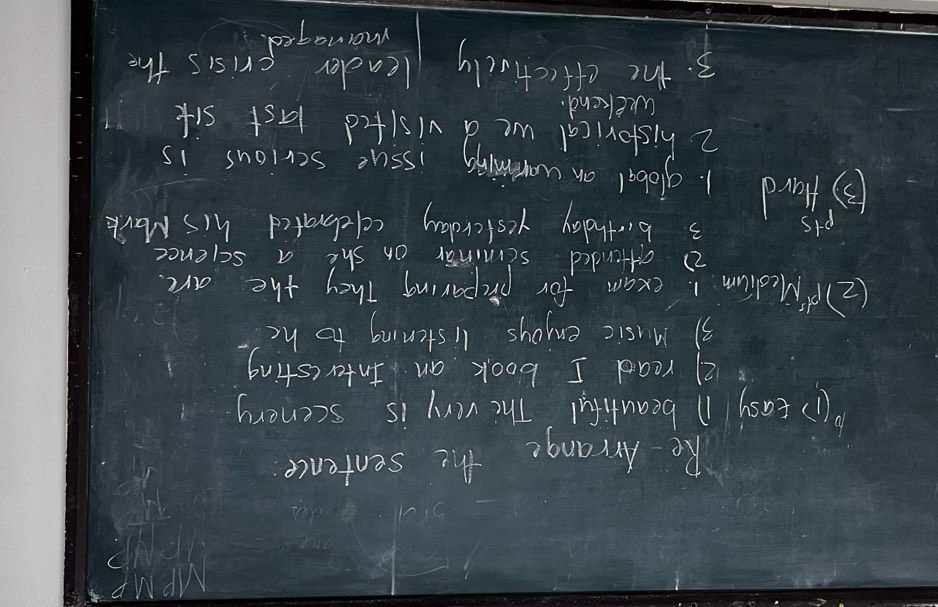 MP MP
Re-Arrange the sentence:
(1) Easy 1) beautiful The very is scenery.
2) read I book an Interesting
3) Music enjoys listening to he
(2) pts Medium 1. exam for preparing They the are.
2) attended seminar on she a science
3 birthday yesterday celebrated his Mark
(3) pts Hard 1. global an warming issue serious is
2 historical we a visited last site
weekend.
3. the effectively leader crisis the
managed.